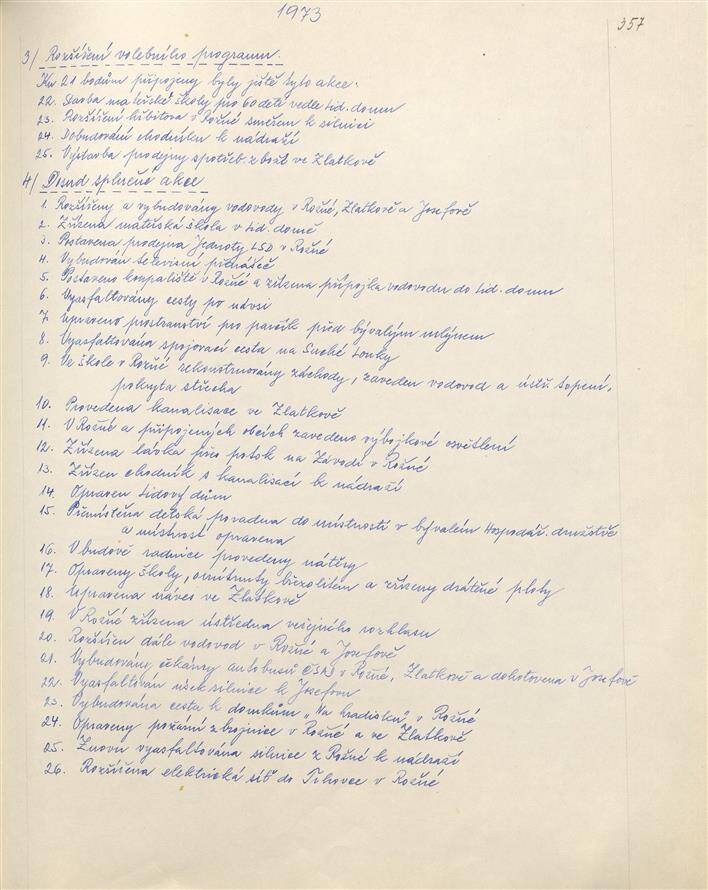 1973
357
3/ Rozšíření volebního programu.
Ku 21 bodům připojeny byly ještě tyto akce.
22. Stavba mateřské školy pro 60 dětí vedle Lid. domu
23. Rozšíření hřbitova v Rožné směrem k silnici
24. Dobudování chodníku k nádraží
25. Výstavba prodejny spotřeb. zboží ve Zlatkově
4/ Dosud splněné akce
1. Rozšířeny a vybudovány vodovody v Rožné, Zlatkově a Josefově
2. Zřízena mateřská škola v Lid. domě
3. Postavena prodejna Jednoty LSD v Rožné
4. Vybudován televizní převáděč
5. Postaveno koupaliště v Rožné a zřízena přípojka vodovodu do Lid. domu
6. Vyasfaltovány cesty po návsi
7. Upraveno prostranství pro parčík před bývalým mlýnem
8. Vyasfaltována spojovací cesta na Suché Louky
9. Ve škole v Rožné rekonstruovány záchody, zaveden vodovod a ústř. topení,
pokryta střecha
10. Provedena kanalisace ve Zlatkově
11. V Rožné a připojených obcích zavedeno výbojkové osvětlení
12. Zřízena lávka přes potok na Závodí v Rožné
13. Zřízen chodník s kanalisací k nádraží
14. Opraven Lidový dům
15. Přemístěna dětská poradna do místností v bývalém Hospodář. družstvě
a místnost opravena
16. V budově radnice provedeny nátěry
17. Opraveny školy, omítnuty břizolitem a zřízeny drátěné ploty
18. Upravena náves ve Zlatkově
19. V Rožné zřízena ústředna veřejného rozhlasu
20. Rozšířen dále vodovod v Rožné a Josefově
21. Vybudovány čekárny autobusů ČSAD v Rožné, Zlatkově a dohotovena v Josefově
22. Vyasfaltován úsek silnice k Josefovu
23. Vybudována cesta k domkům „Na hradisku" v Rožné
24. Opraveny požární zbrojnice v Rožné a ve Zlatkově
25. Znovu vyasfaltována silnice z Rožné k nádraží
26. Rozšířena elektrická síť do Tihovce v Rožné